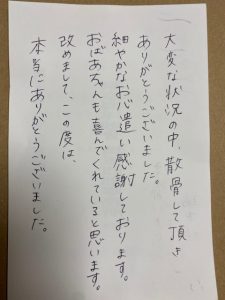 大変な状況の中、散骨して頂き
ありがとうございました。
細やかなお心遣い感謝しております。
おばあちゃんも喜んでくれていると思います。
改めまして、この度は、
本当にありがとうございました。